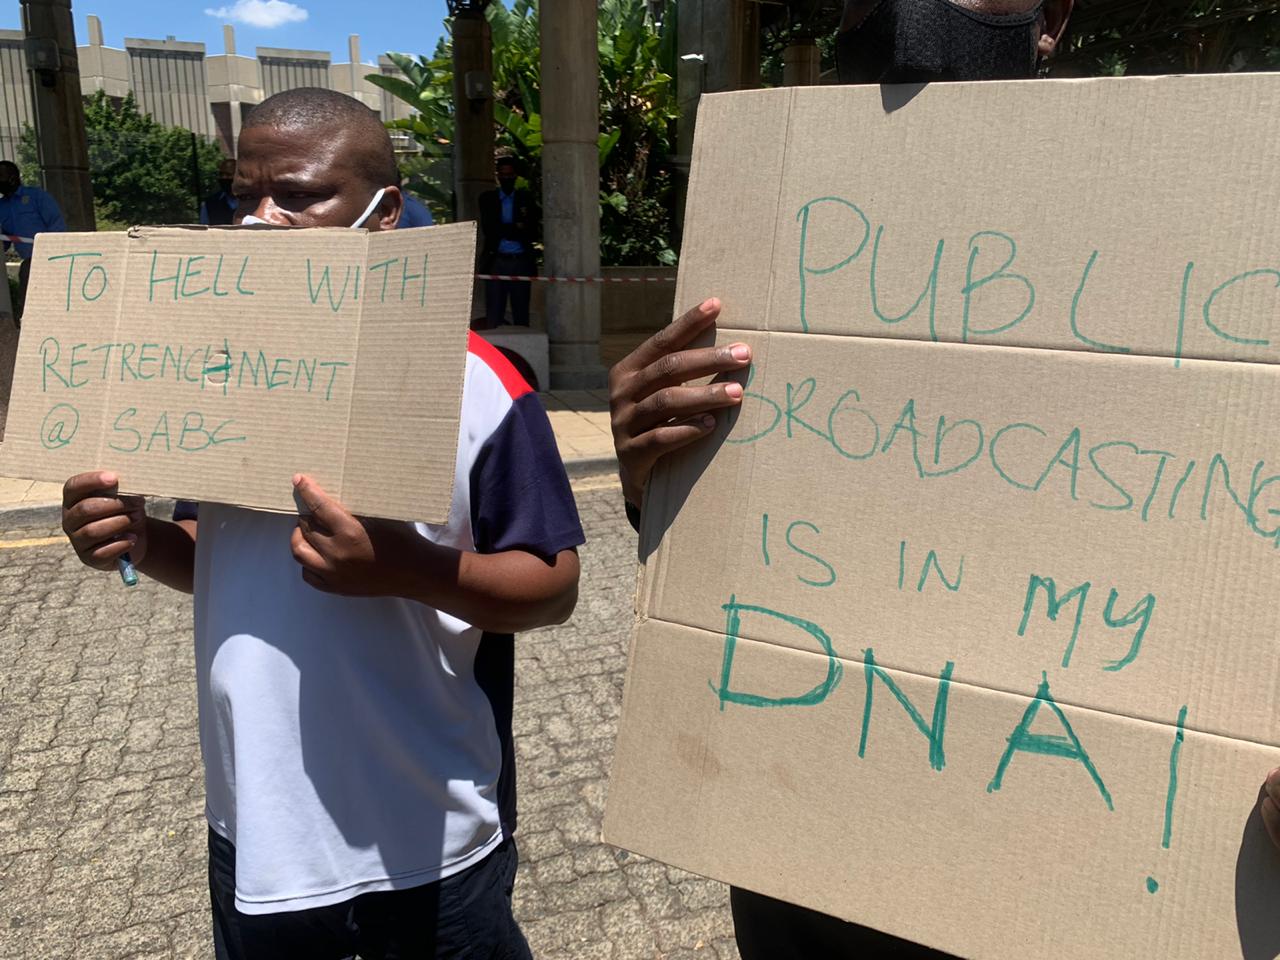 TO HELL WITH
RETRENCHMENT
@ SABC
PUBLIC
BROADCASTING
IS IN My
DNA!